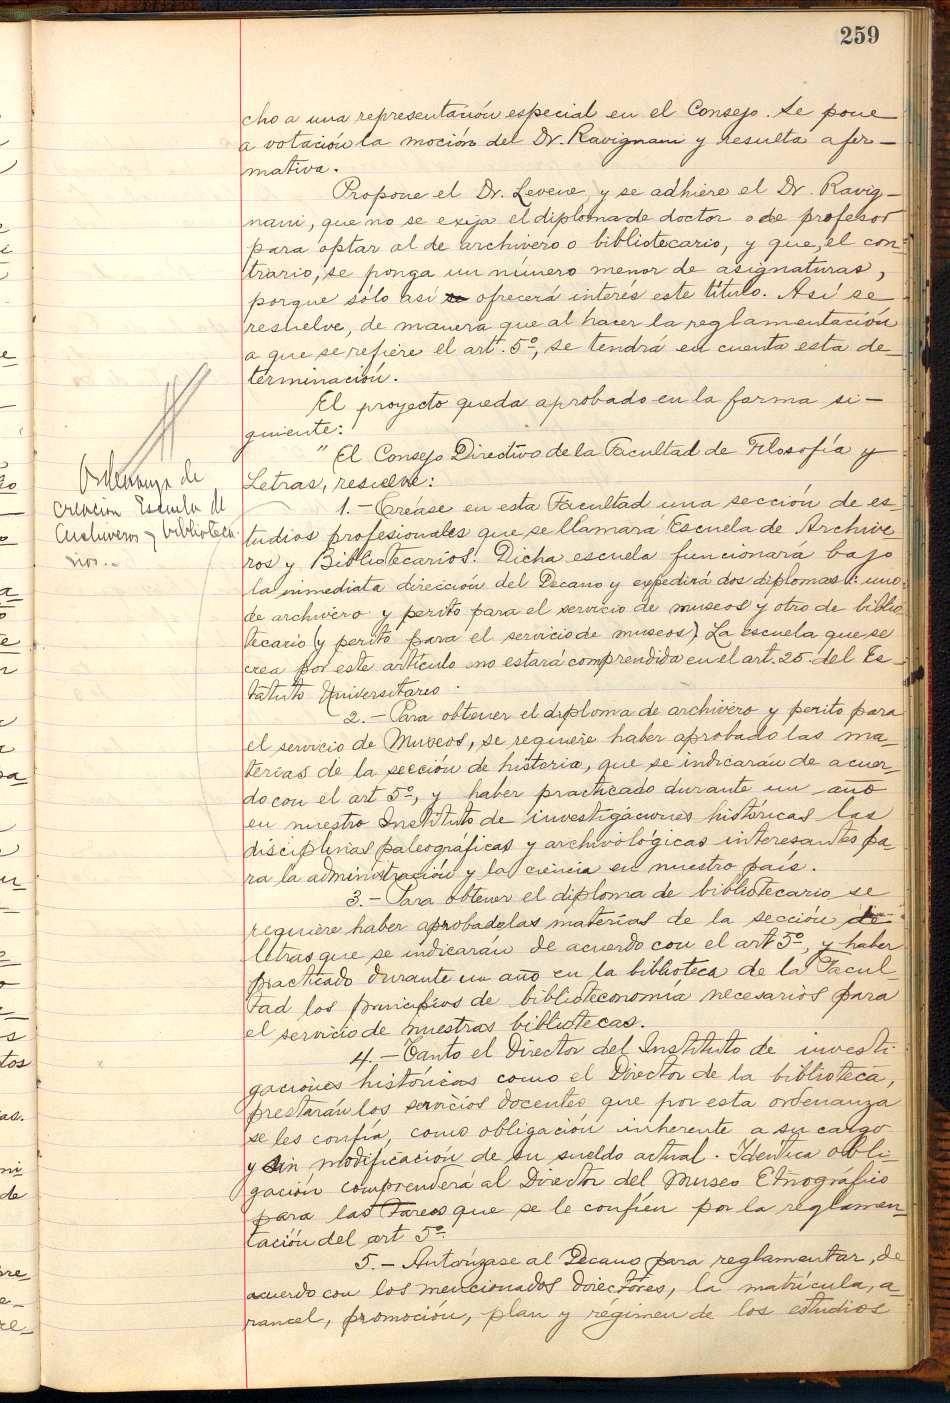 259
cho a una representación especial en el Consejo. Se pone
a votación la moción del Dr. Ravignani y resulta afir-
mativa.
Propone el Dr. Levene y se adhiere el Dr. Ravig-
nani, que no se exija el diploma de doctor o de profesor
para optar al de archivero o bibliotecario, y que, el con-
trario, se ponga un número menor de asignaturas,
porque sólo así ofrecerá interés este título. Así se
resuelve, de manera que al hacer la reglamentación
a que se refiere el art. 5º, se tendrá en cuenta esta de-
terminación.
El proyecto queda aprobado en la forma si-
guiente:
"El Consejo Directivo de la Facultad de Filosofía y
Letras, resuelve:
1.- Créase en esta Facultad una sección de es-
tudios profesionales que se llamara Escuela de Archive-
ros y Bibliotecarios. Dicha escuela funcionará bajo
la inmediata dirección del Decano y expedirá dos diplomas: uno
de archivero y perito para el servicio de museos y otro de biblio-
tecario (y perito para el servicio de museos). La escuela que se
crea por este artículo no estará comprendida en el art. 25 del Es-
tatuto Universitario.
2.- Para obtener el diploma de archivero y perito para
el servicio de Museos, se requiere haber aprobado las ma-
terias de la sección de historia, que se indicarán de acuer-
do con el art 5º, y haber practicado durante un año
en nuestro Instituto de investigaciones históricas las
disciplinas paleográficas y archivológicas interesantes pa-
ra la administración y la ciencia en nuestro país.
3.- Para obtener el diploma de bibliotecario se
requiere haber aprobado las materias de la sección de
letras que se indicarán de acuerdo con el art 5º, y haber
practicado durante un año en la biblioteca de la Facul-
tad los principios de biblioteconomía necesarios para
el servicio de nuestras bibliotecas.
4.- Tanto el Director del Instituto de investi-
gaciones históricas como el Director de la biblioteca,
prestarán los servicios docentes que por esta ordenanza
se les confía, como obligación inherente a su cargo
y sin modificación de su sueldo actual. Idéntica obli-
gación comprenderá al Director del Museo Etnográfico
para las tareas que se le confíen por la reglamen-
tación del art 5º.
5.- Autorízase al Decano para reglamentar, de
acuerdo con los mencionados directores, la matrícula, a-
rancel, promoción, plan y regimen de los estudios
Ordenanza de
creación Escuela de
Archiveros y biblioteca-
rios.-